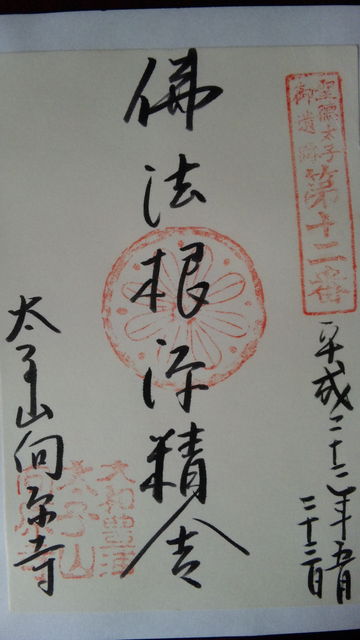 聖徳太子
御遺跡
第十二番
平成二十二年五月
二十二日
佛法根源精舎
太子山向原寺
大和豊浦
太子山
向原寺